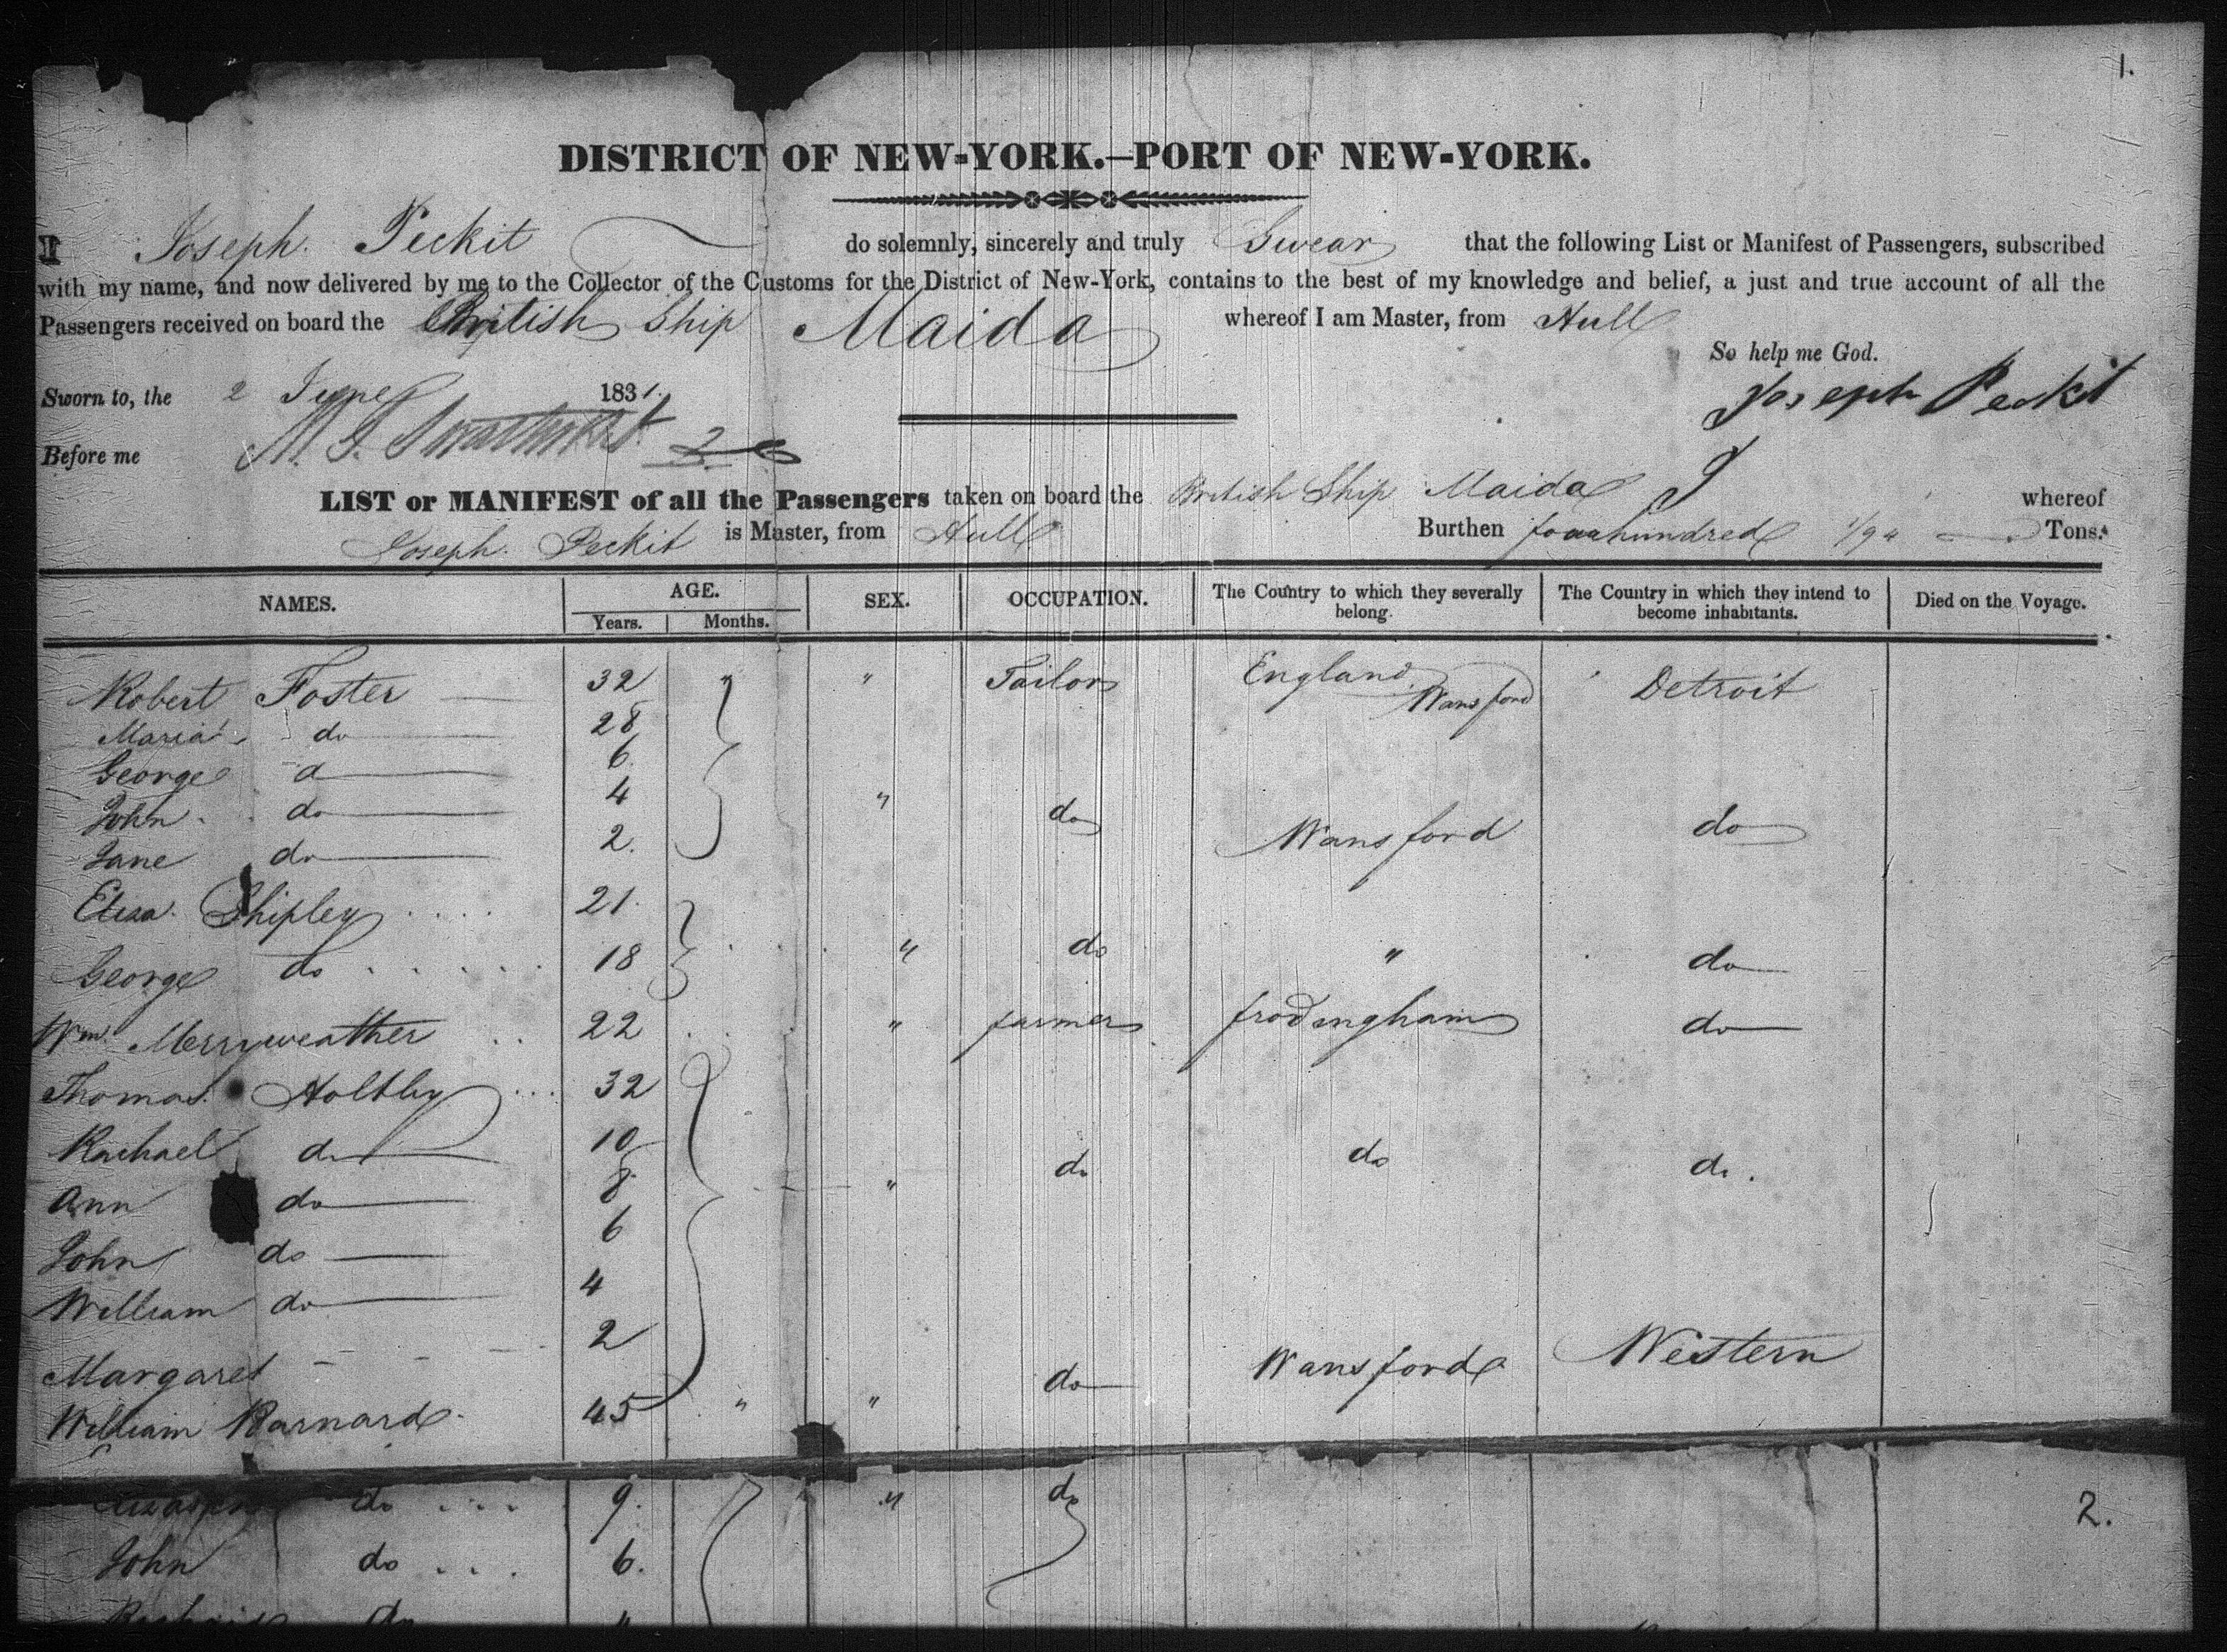 1.
DISTRICT OF NEW-YORK.—PORT OF NEW-YORK.
I Joseph. Peckit do solemnly, sincerely and truly Swear that the following List or Manifest of Passengers, subscribed
with my name, and now delivered by me to the Collector of the Customs for the District of New-York, contains to the best of my knowledge and belief, a just and true account of all the
Passengers received on board the British Ship Maida whereof I am Master, from Hull
So help me God.
Sworn to, the 2 June 1831. Joseph Peckit
Before me
LIST or MANIFEST of all the Passengers taken on board the British Ship Maida whereof
Joseph. Peckit is Master, from Hull Burthen four hundred Tons.
NAMES. AGE. SEX. OCCUPATION. The Country to which they severally belong. The Country in which they intend to become inhabitants. Died on the Voyage.
Years. Months.
Robert Foster 32 " " Tailor England Wansford Detroit
Maria do 28
George d 6
John do 4 " do Wansford do
Jane do 2.
Eliza. Shipley 21.
George do 18 " do " do
Wm. Merryweather 22 " farmer frodingham do
Thomas Holtby 32
Rachael do 10
Ann do 8 " do do do.
John do 6
William do 4
Margaret 2
William Barnard 45 " " do Wansford Western
do 9. " do
2.
John do 6.
do "